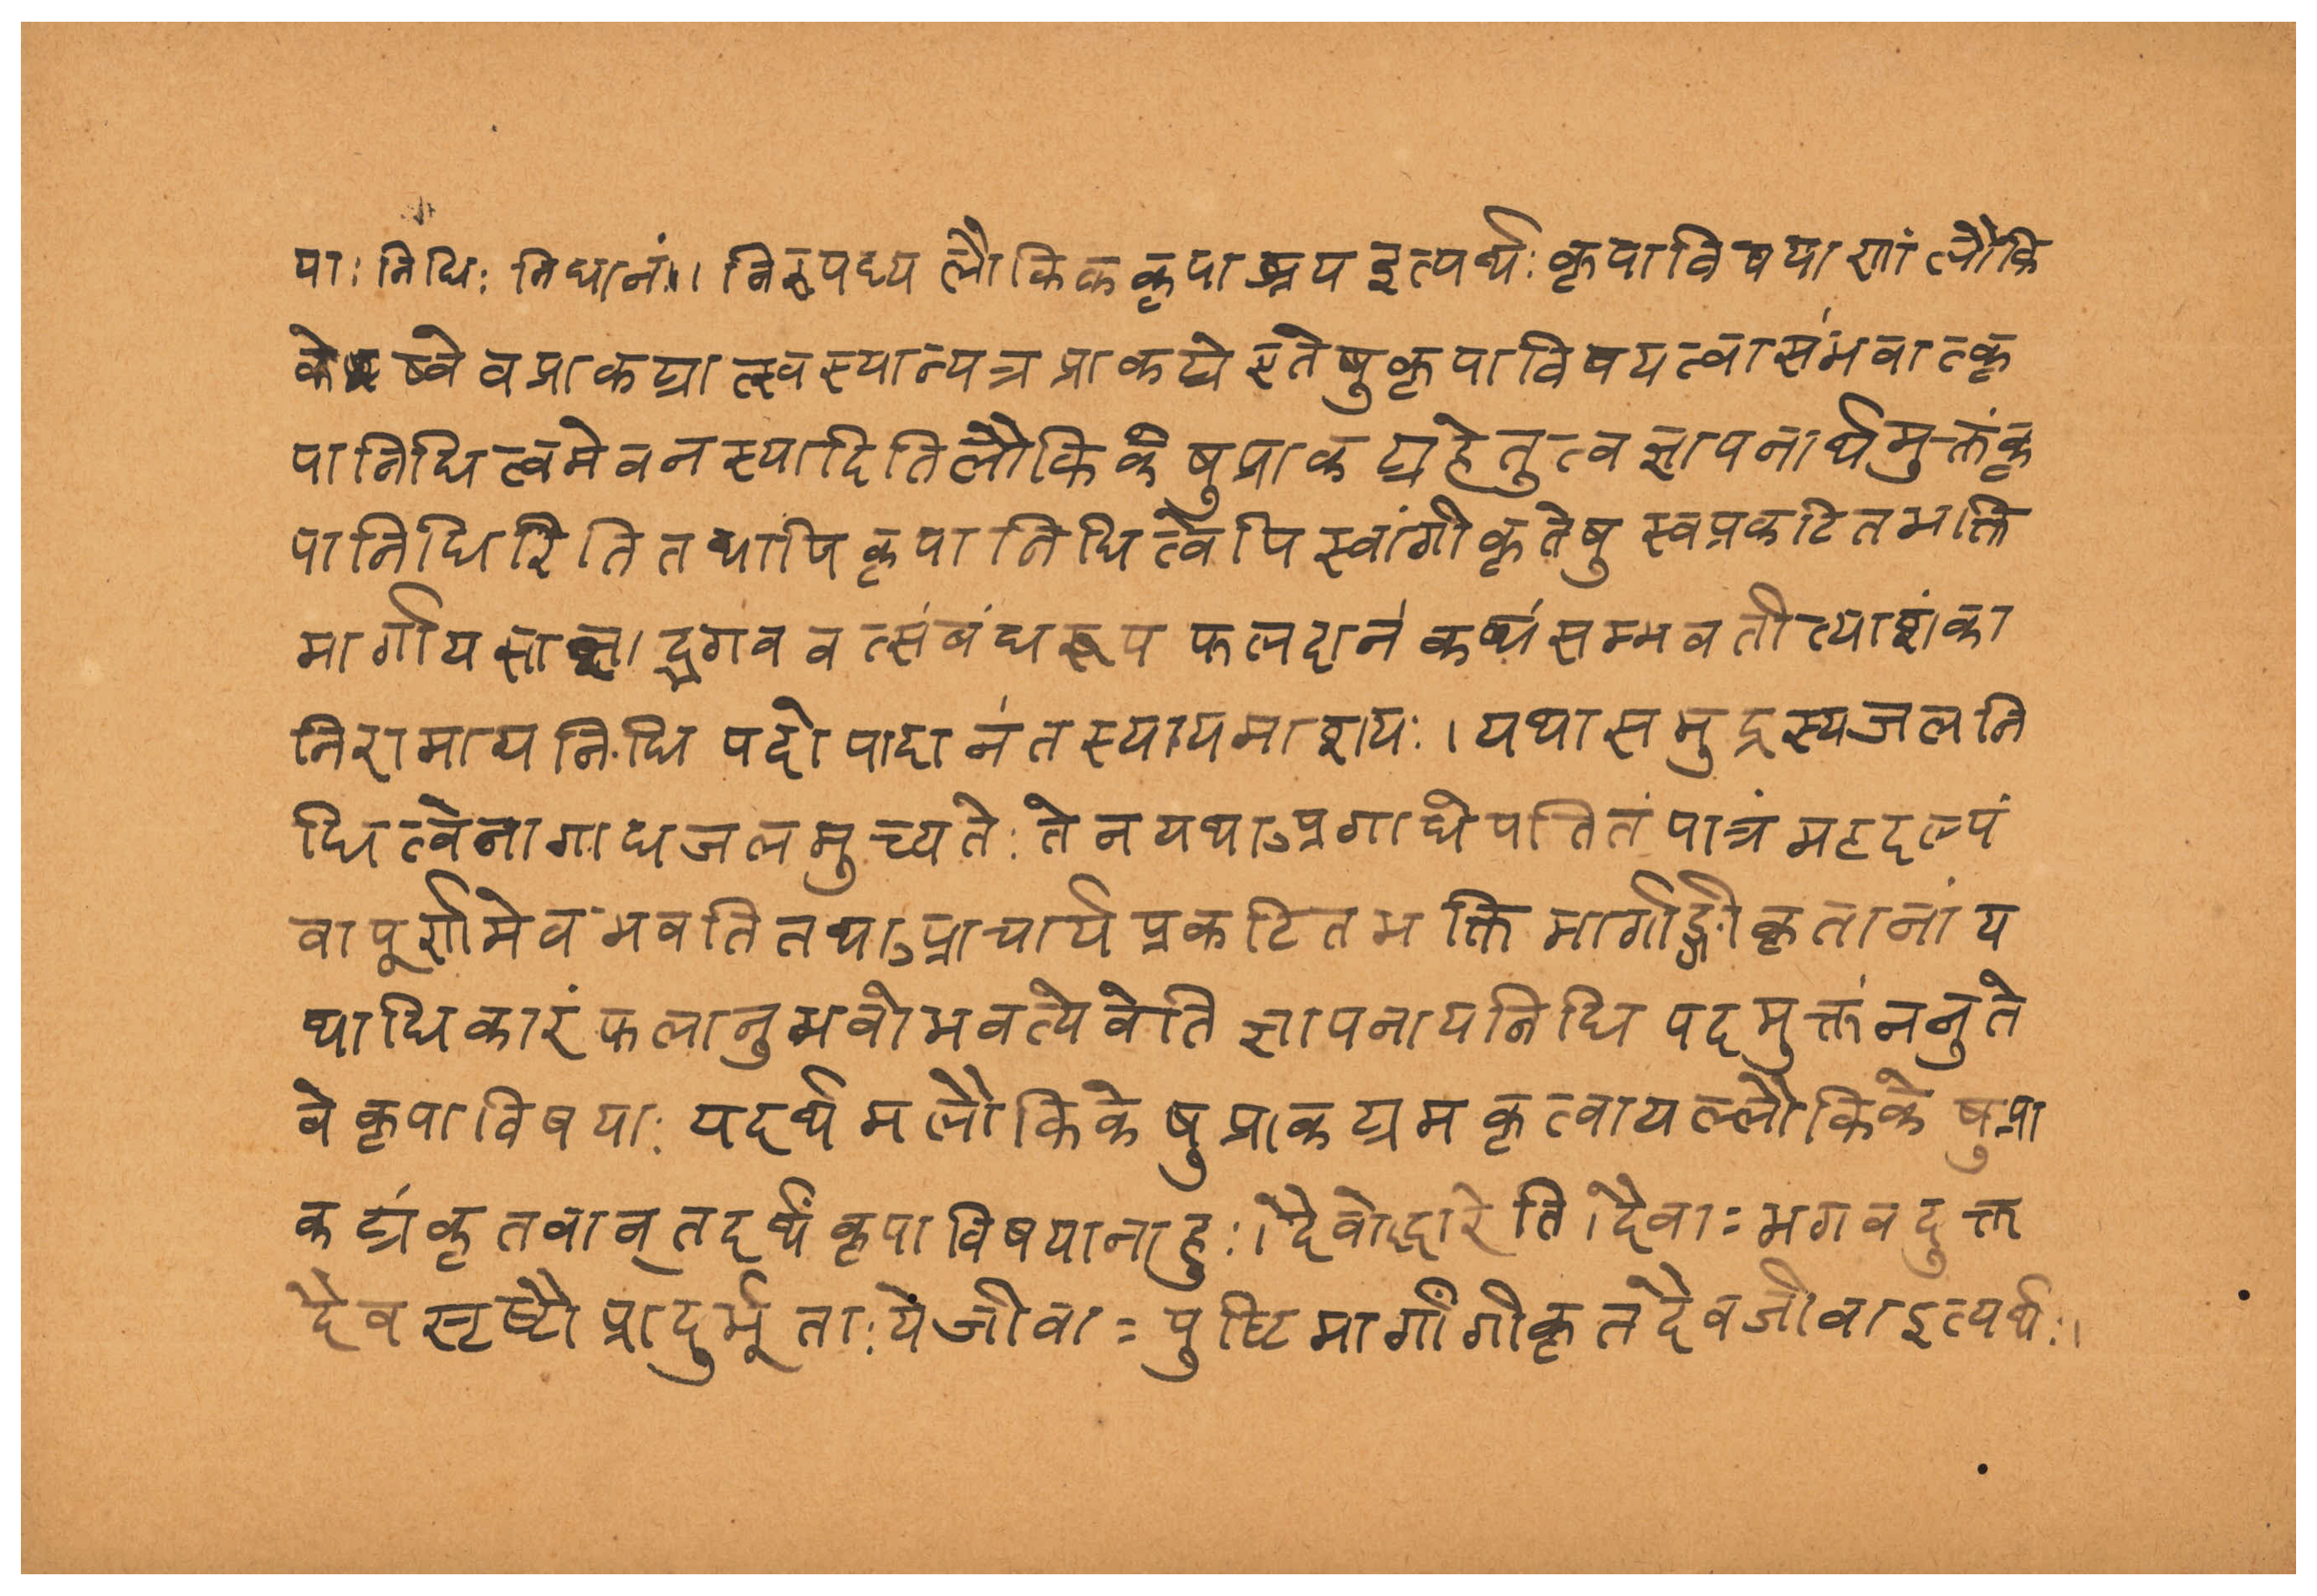 पाः निधिः निधानं।। निरूपध्य लौकिक कृपा रूप इत्यर्थः कृपाविषयाणां लौकि
केष्वेव प्राकट्यात्स्वस्यान्यत्र प्राकट्ये एतेषु कृपाविषयत्वासंभवात्कृ
पानिधित्वमेव न स्यादिति लौकिकेषु प्राकट्यहेतुत्वज्ञापनार्थमुक्तं कृ
पानिधिरिति तथापि कृपानिधित्वेपि स्वांगीकृतेषु स्वप्रकटितभक्ति
मार्गीय साक्षाद्भगवत्संबंधरूप फलदानं कथं सम्भवतीत्याशंका
निरासाय निधि पदोपादानं तस्यायमाशयः। यथा समुद्रस्य जलनि
धित्वेनागाधजलमुच्यतेः तेन यथाऽप्रगाधे पतितं पात्रं महदल्पं
वा पूर्णमेव भवति तथाऽप्राचार्य प्रकटितभक्ति मार्गाङ्गीकृतानां य
थाधिकारं फलानुभवो भवत्येवेति ज्ञापनाय निधि पदमुक्तं ननु ते
वे कृपाविषयाः यदर्थमलौकिकेषु प्राकट्यमकृत्वा यल्लौकिकेषु प्रा
कट्यं कृतवान् तदर्थं कृपाविषयानाहुः। दैवोद्धारेति। दैवाः भगवदुक्त
दैव सृष्टौ प्रादुर्भूताः ये जीवाः पुष्टिमार्गांगीकृत दैवजीवा इत्यर्थः।